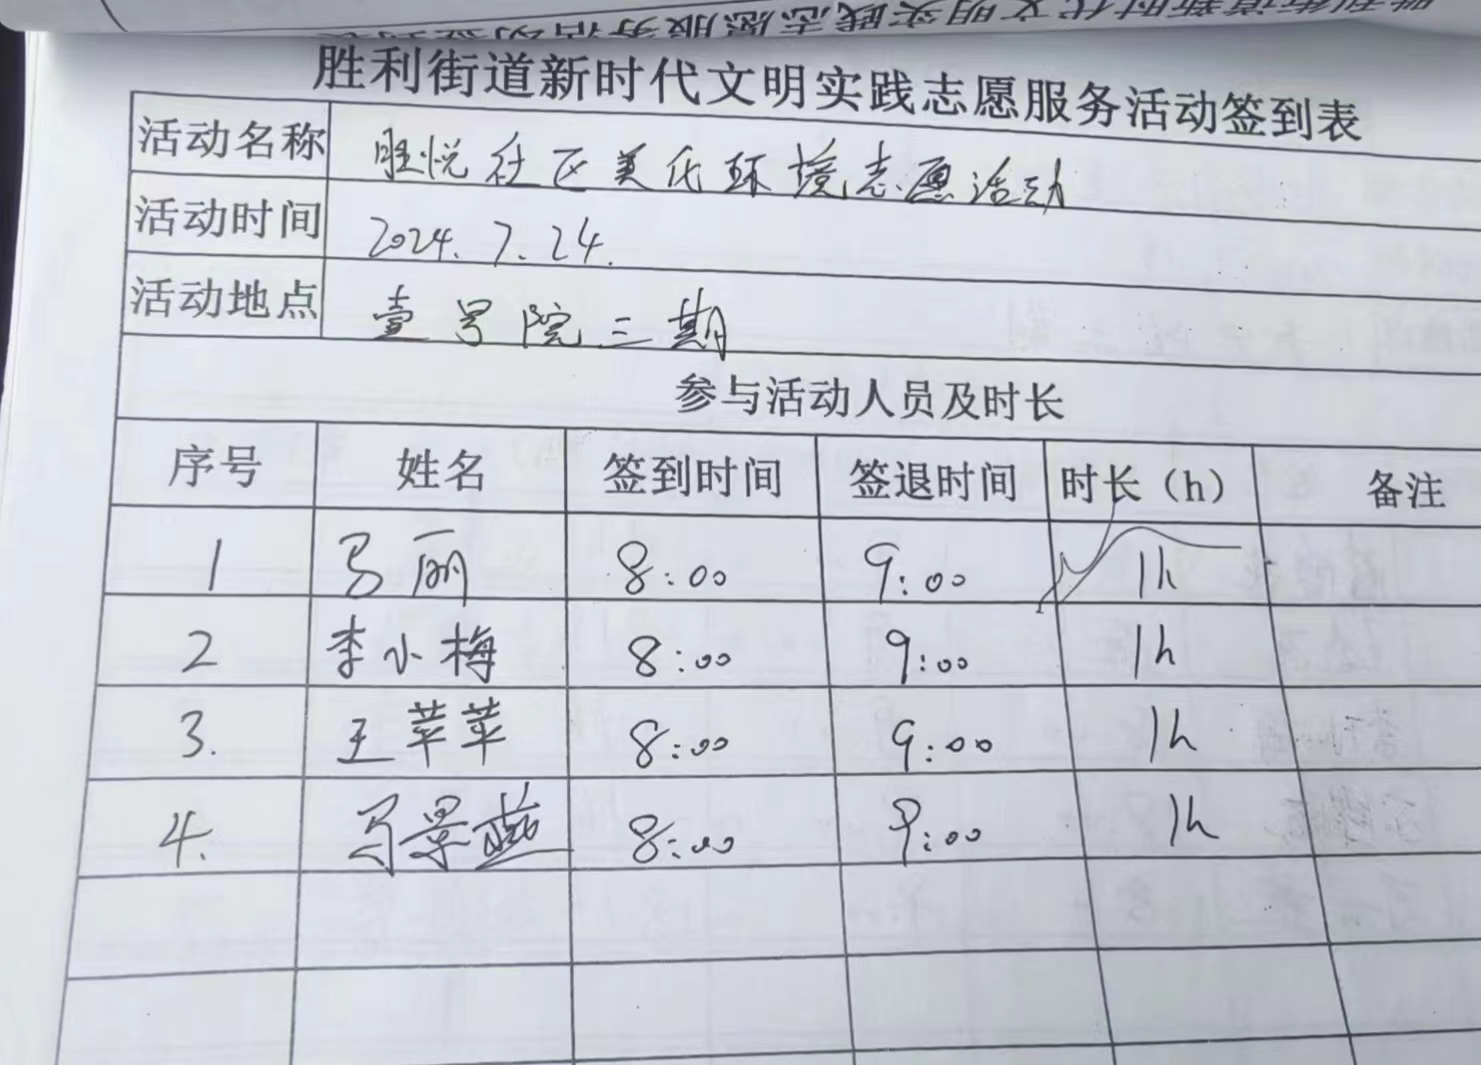 胜利街道新时代文明实践志愿服务活动签到表
活动名称 胜悦社区美化环境志愿活动
活动时间 2024.7.24.
活动地点 壹号院三期
参与活动人员及时长
序号 姓名 签到时间 签退时间 时长（h） 备注
1 马丽 8:00 9:00 1h
2 李小梅 8:00 9:00 1h
3. 王苹苹 8:00 9:00 1h
4. 马景燕 8:00 9:00 1h